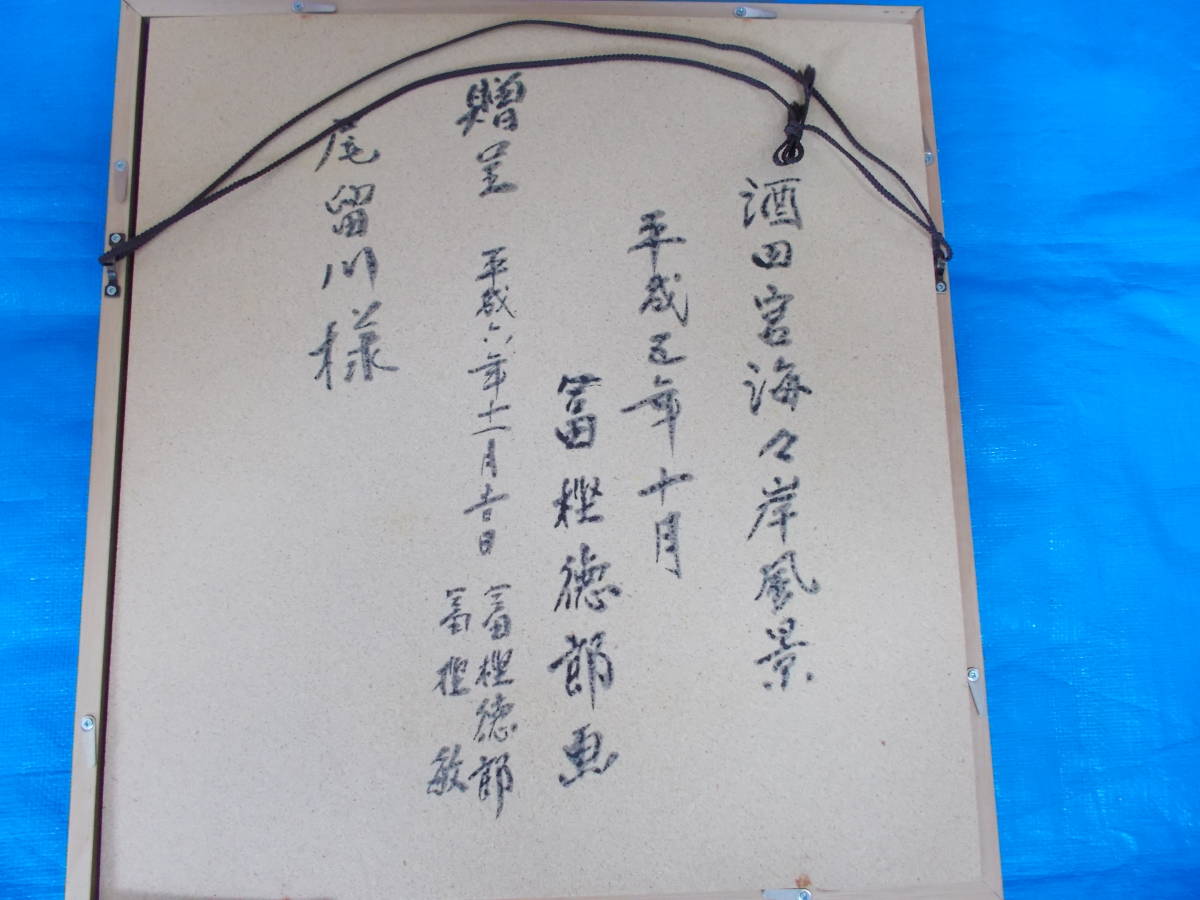 酒田宮海々岸風景
平成五年十月
富樫徳郎画
贈呈 平成六年十二月吉日 富樫徳郎
富樫 敏
尾留川様